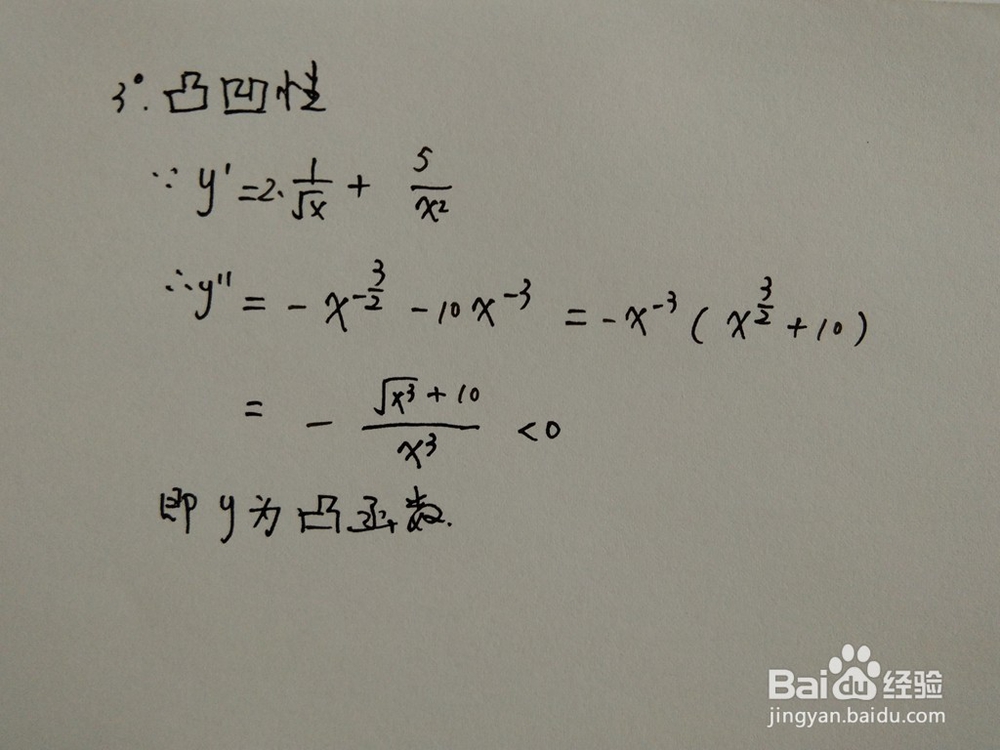 3°.凸凹性
∵ y' = 2·1/√x + 5/x²
∴ y'' = -x^(-3/2) - 10x^(-3) = -x^(-3)(x^(3/2) + 10)
= - (√x³ + 10)/x³ < 0
即 y 为凸函数.
Baidu 经验
jingyan.baidu.com